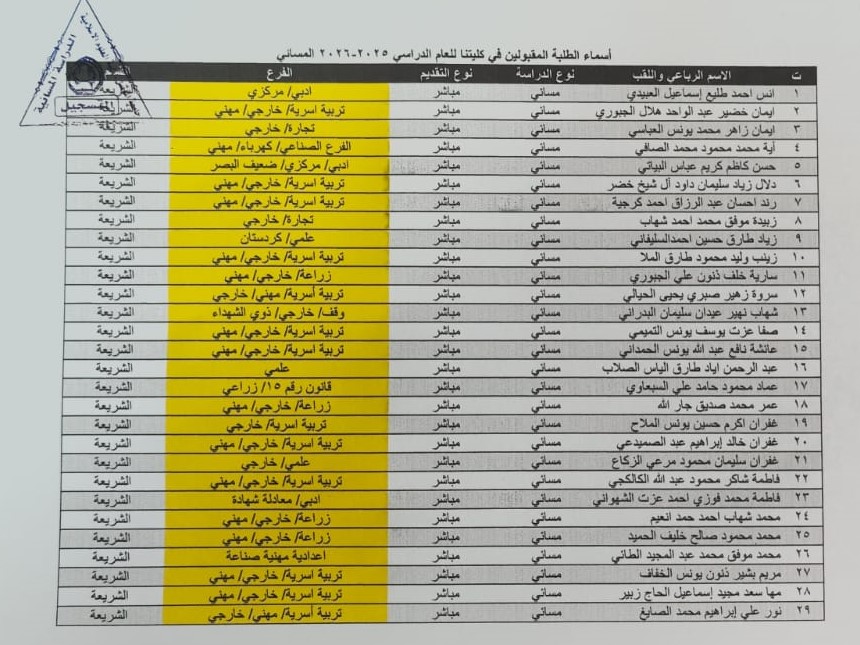 الدراسة المسائية
التسجيل
أسماء الطلبة المقبولين في كليتنا للعام الدراسي ٢٠٢٥-٢٠٢٦ المسائي
ت الاسم الرباعي واللقب نوع الدراسة نوع التقديم الفرع
١ انس احمد طليع إسماعيل العبيدي مسائي مباشر ادبي/ مركزي الشريعة
٢ ايمان خضير عبد الواحد هلال الجبوري مسائي مباشر تربية اسرية/ خارجي/ مهني الشريعة
٣ ايمان زاهر محمد يونس العباسي مسائي مباشر تجارة/ خارجي الشريعة
٤ آية محمد محمود محمد الصافي مسائي مباشر الفرع الصناعي/ كهرباء/ مهني الشريعة
٥ حسن كاظم كريم عباس البياتي مسائي مباشر ادبي/ مركزي/ ضعيف البصر الشريعة
٦ دلال زياد سليمان داود آل شيخ خضر مسائي مباشر تربية اسرية/ خارجي/ مهني الشريعة
٧ رند احسان عبد الرزاق احمد كرجية مسائي مباشر تربية اسرية/ خارجي/ مهني الشريعة
٨ زبيدة موفق محمد احمد شهاب مسائي مباشر تجارة/ خارجي الشريعة
٩ زياد طارق حسين احمدالسليفاني مسائي مباشر علمي/ كردستان الشريعة
١٠ زينب وليد محمود طارق الملا مسائي مباشر تربية اسرية/ خارجي/ مهني الشريعة
١١ سارية خلف ذنون علي الجبوري مسائي مباشر زراعة/ خارجي/ مهني الشريعة
١٢ سروة زهير صبري يحيى الحيالي مسائي مباشر تربية أسرية/ مهني/ خارجي الشريعة
١٣ شهاب نهير عيدان سليمان البدراني مسائي مباشر وقف/ خارجي/ ذوي الشهداء الشريعة
١٤ صفا عزت يوسف يونس التميمي مسائي مباشر تربية اسرية/ خارجي/ مهني الشريعة
١٥ عائشة نافع عبد الله يونس الحمداني مسائي مباشر تربية اسرية/ خارجي/ مهني الشريعة
١٦ عبد الرحمن اياد طارق الياس الصلاب مسائي مباشر علمي الشريعة
١٧ عماد محمود حامد علي السبعاوي مسائي مباشر قانون رقم ١٥/ زراعي الشريعة
١٨ عمر محمد صديق جار الله مسائي مباشر زراعة/ خارجي/ مهني الشريعة
١٩ غفران اكرم حسين يونس الملاح مسائي مباشر تربية اسرية/ خارجي الشريعة
٢٠ غفران خالد إبراهيم عبد الصميدعي مسائي مباشر تربية اسرية/ خارجي/ مهني الشريعة
٢١ غفران سليمان محمود مرعي الزكاع مسائي مباشر علمي/ خارجي الشريعة
٢٢ فاطمة شاكر محمود عبد الله الكالكجي مسائي مباشر تربية اسرية/ خارجي/ مهني الشريعة
٢٣ فاطمة محمد فوزي احمد عزت الشهواني مسائي مباشر ادبي/ معادلة شهادة الشريعة
٢٤ محمد شهاب احمد حمد انعيم مسائي مباشر زراعة/ خارجي/ مهني الشريعة
٢٥ محمد محمود صالح خليف الحميد مسائي مباشر زراعة/ خارجي/ مهني الشريعة
٢٦ محمد موفق محمد عبد المجيد الطائي مسائي مباشر اعدادية مهنية صناعة الشريعة
٢٧ مريم بشير ذنون يونس الخفاف مسائي مباشر تربية اسرية/ خارجي/ مهني الشريعة
٢٨ مها سعد مجيد إسماعيل الحاج زبير مسائي مباشر تربية اسرية/ خارجي/ مهني الشريعة
٢٩ نور علي إبراهيم محمد الصايغ مسائي مباشر تربية أسرية/ مهني/ خارجي الشريعة